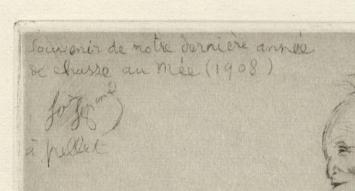 Souvenir de notre dernière année
de chasse au Mée (1908)
à Pellet